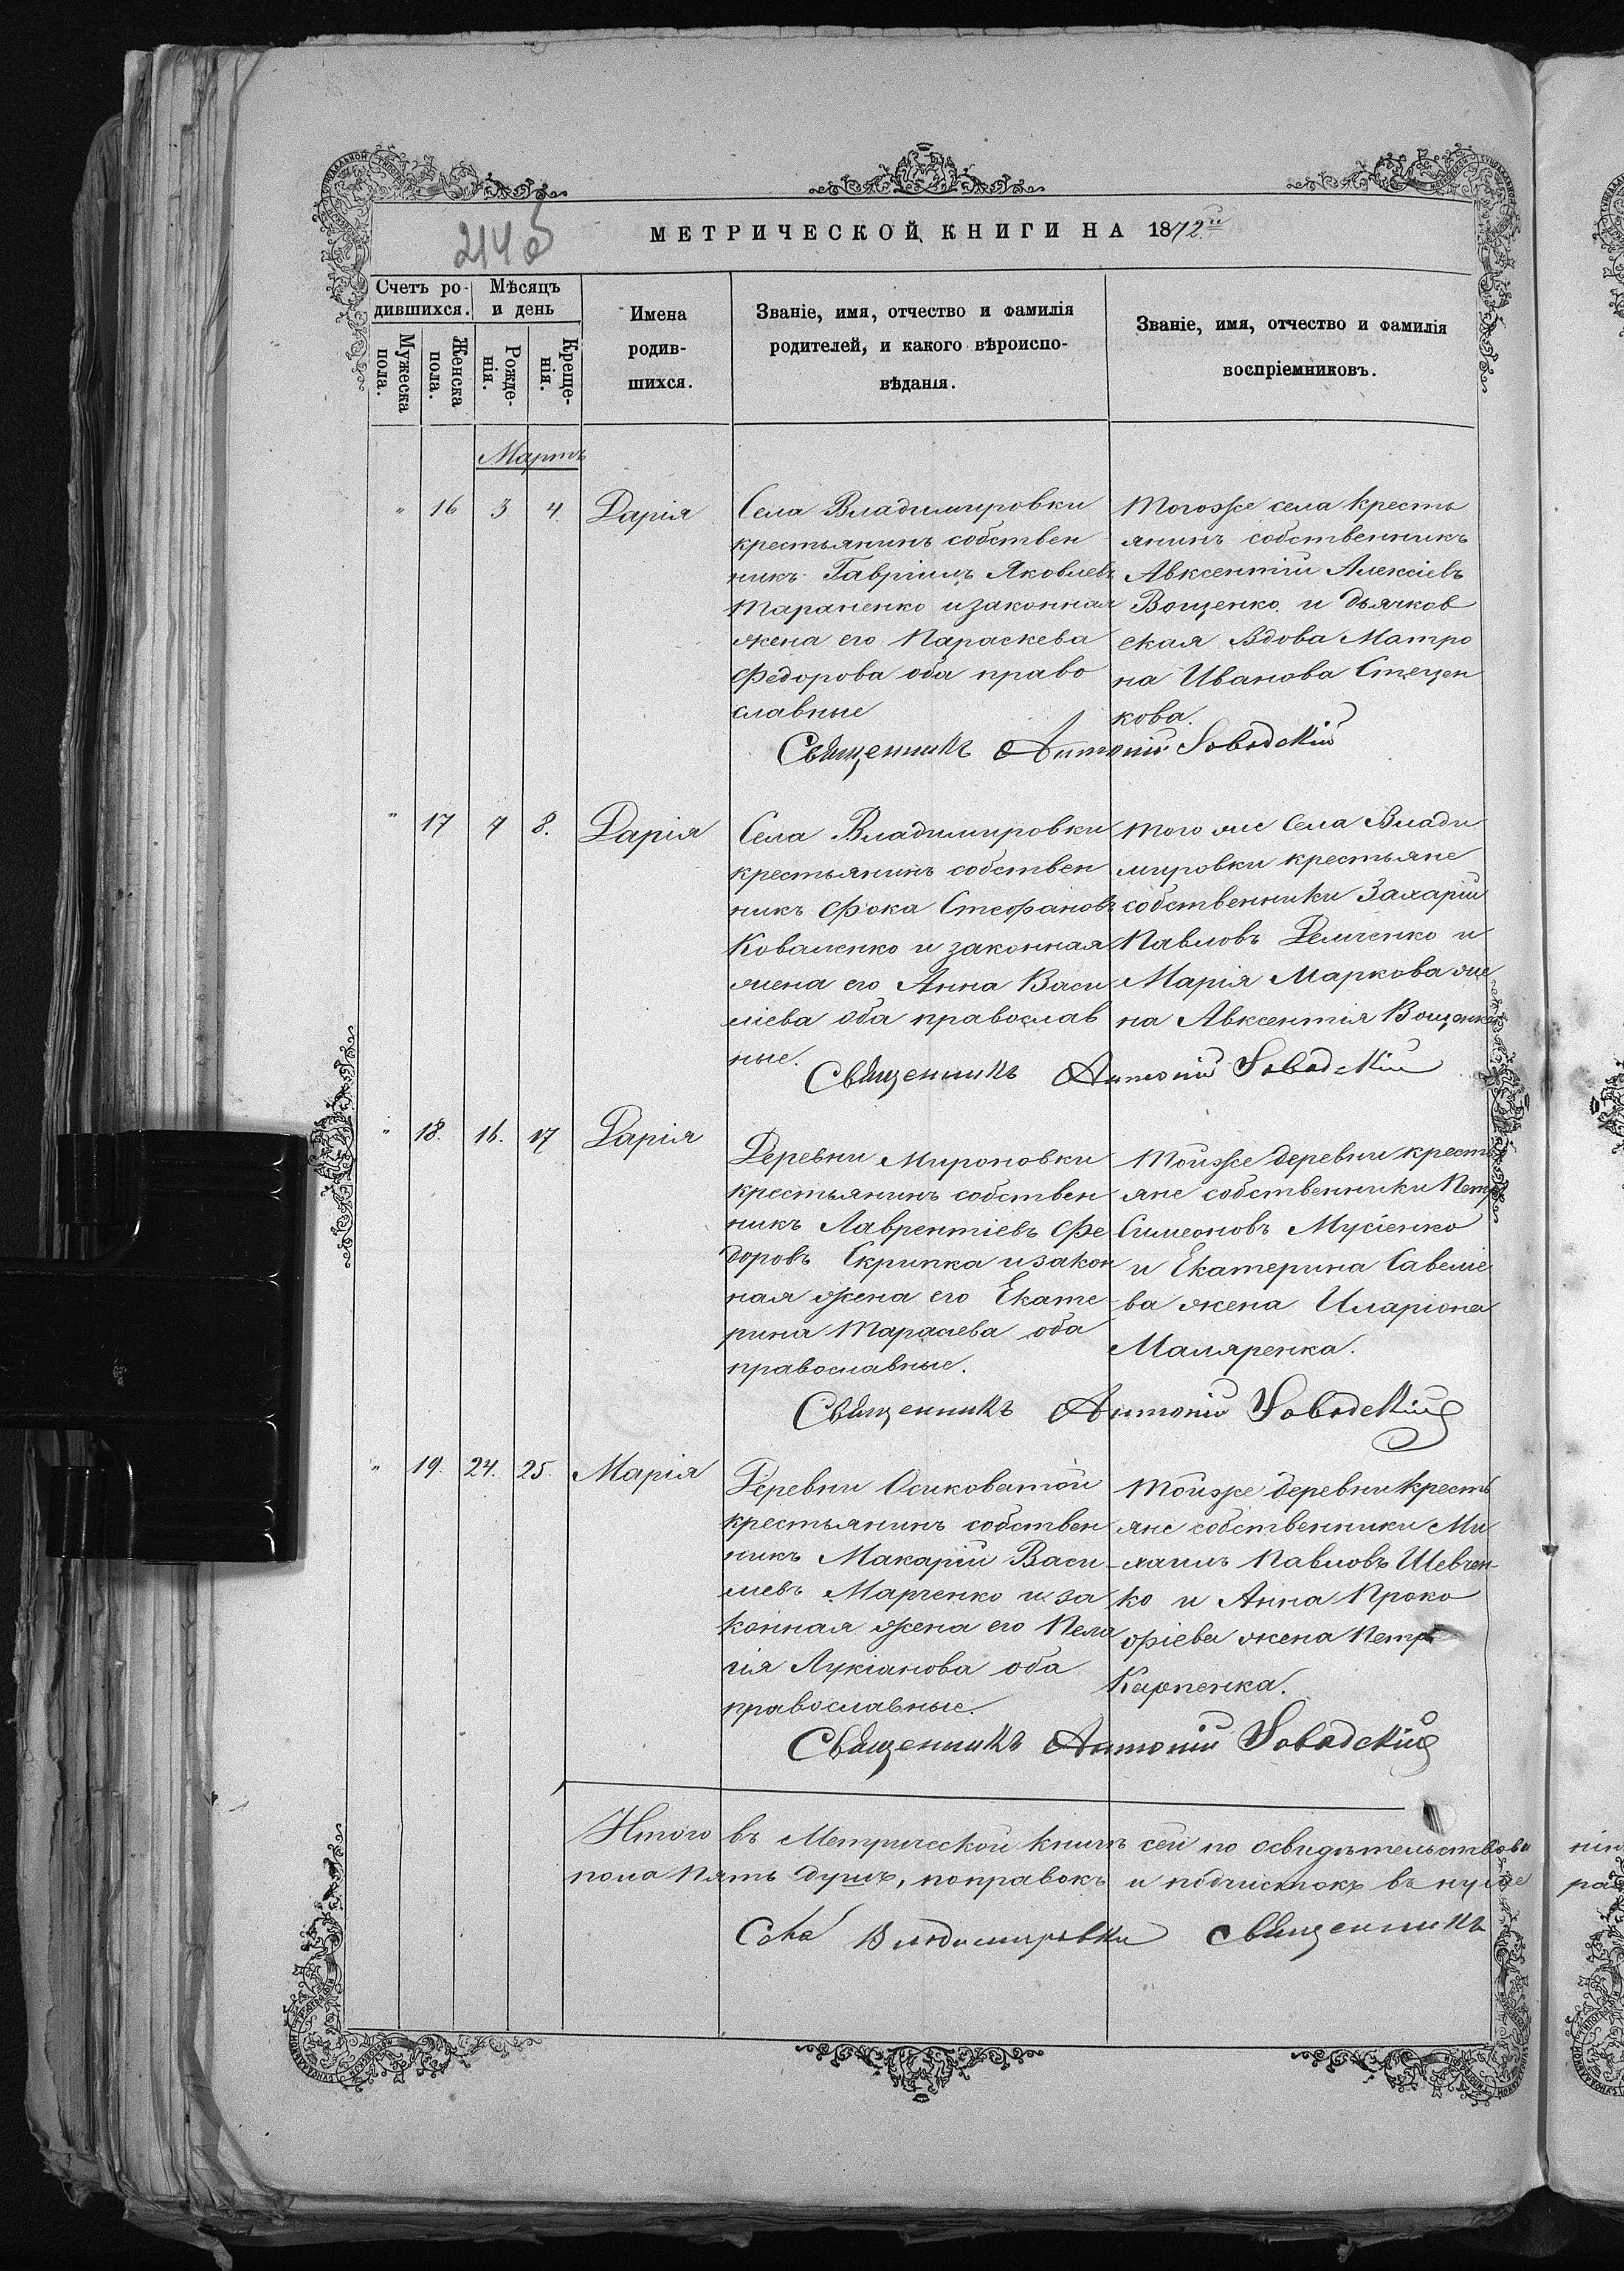 214 б
МЕТРИЧЕСКОЙ КНИГИ НА 1872й
Счетъ ро-
дившихся.
Мѣсяцъ
и день
Мужеска
пола.
Женска
пола.
Рожде-
нія.
Креще-
нія.
Имена
родив-
шихся.
Званіе, имя, отчество и фамилія
родителей, и какого вѣроиспо-
вѣданія.
Званіе, имя, отчество и фамилія
воспріемниковъ.
Мартъ
" 16 3 4. Дарія
Села Владимировки
крестьянинъ собствен
никъ Гавріилъ Яковлевъ
Тараненко и законная
жена его Параскева
Федорова оба право
славные
Тогоже села кресть
янинъ собственникъ
Авксентій Алексіевъ
Вощенко и дьячков
ская вдова Матро
на Иванова Стецен
кова.
Священникъ Антоній
" 17 7 8. Дарія
Села Владимировки
крестьянинъ собствен
никъ Фока Стефановъ
Коваленко и законная
жена его Анна Васи
ліева оба православ
ные.
Того же Села Влади
мировки крестьяне
собственники Захарій
Павловъ Демченко и
Марія Маркова же
на Авксентія Вощенко
Священникъ Антоній
" 18. 16. 17 Дарія
Деревни Мироновки
крестьянинъ собствен
никъ Лаврентіевъ Фе
доровъ Скрипка и закон
ная жена его Екате
рина Тарасіева оба
православные.
Тойже деревни кресть
яне собственники Петръ
Симеоновъ Мусіенко
и Екатерина Савеліе
ва жена Иларіона
Маляренка.
Священникъ Антоній
" 19. 24. 25. Марія
Деревни Осиковатой
крестьянинъ собствен
никъ Макарій Васи
лиевъ Марченко и за
конная жена его Пела
гія Лукіанова оба
православные.
Тойже деревни кресть
яне собственники Ми
хаилъ Павловъ Шевчен-
ко и Анна Проко
фіева жена Петра
Карпенка.
Священникъ Антоній
Итого въ Метрической книгѣ сей по освидѣтельствова
пола Пять душъ, поправокъ и подчистокъ въ ну
Села Владимировки Священникъ